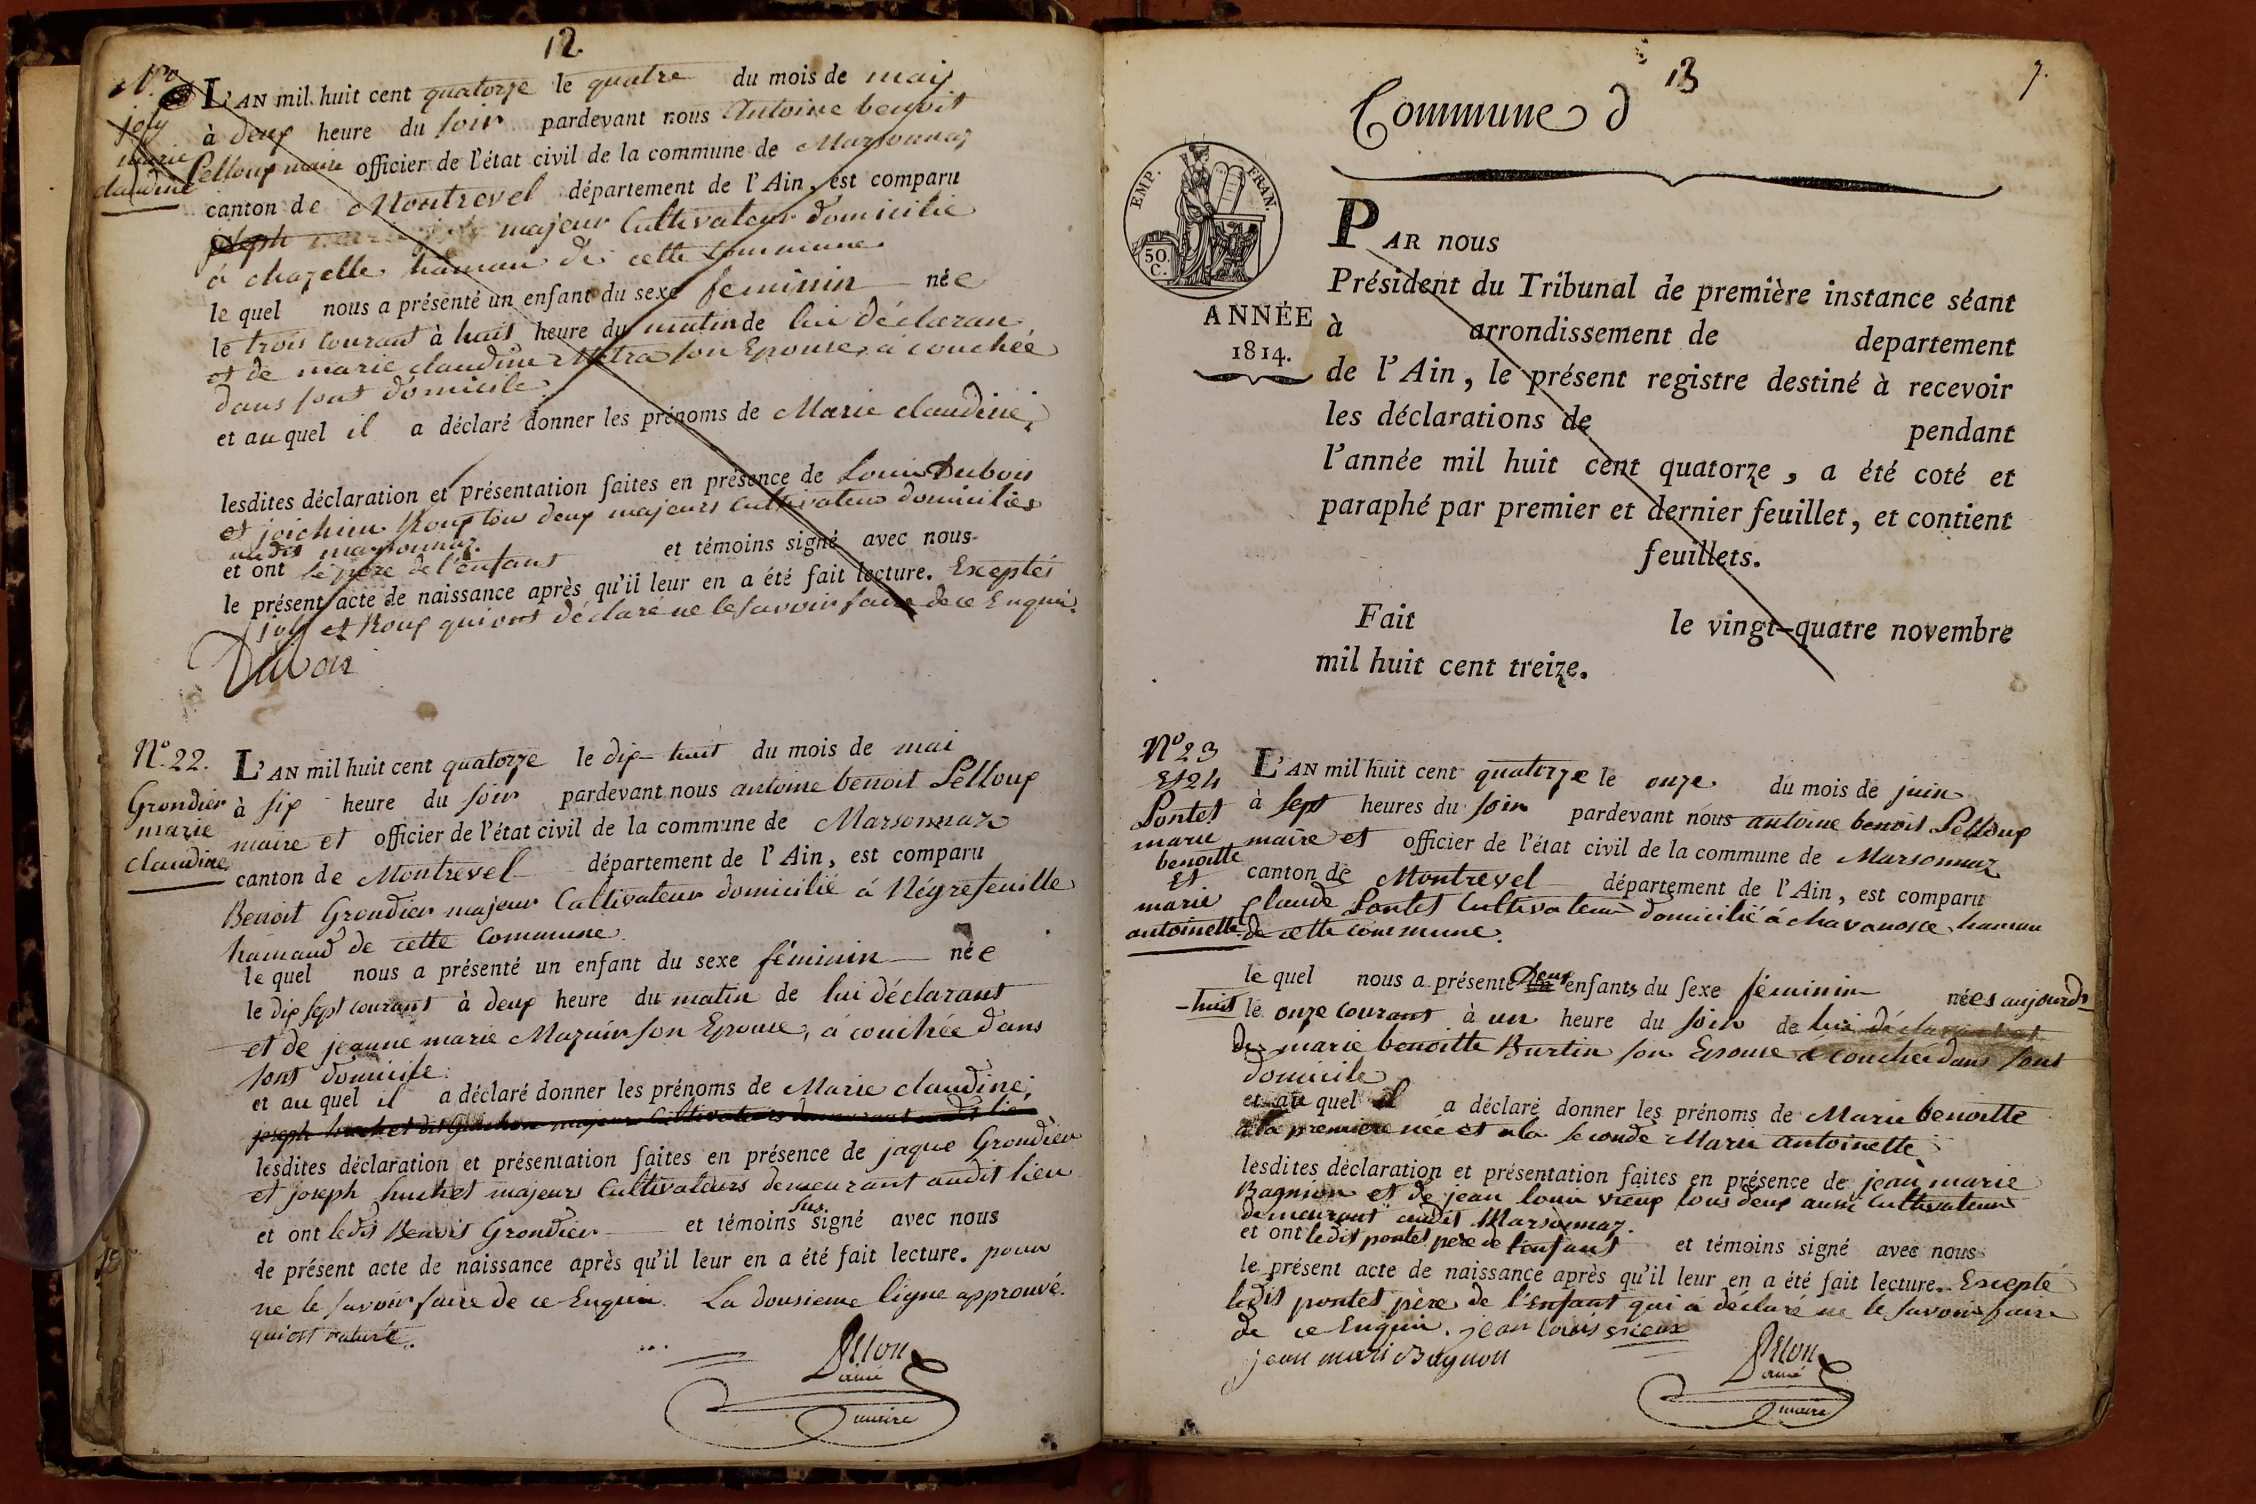 12.
N.o
joly
marie
claudine
L'AN mil huit cent quatorze le quatre du mois de mais
à deux heure du soir pardevant nous Antoine benoit
Pelloux maire officier de l'état civil de la commune de Marsonnaz
canton de Montrevel département de l'Ain, est comparu
joseph majeur Cultivateur domicilié
à chazelle hamau de cette commune
le quel nous a présenté un enfant du sexe feminin née
le trois courant à huit heure du matin de lui déclaran
et de marie claudine son Epouse, à couchée
dans sont domicile.
et au quel il a déclaré donner les prénoms de Marie claudine,
lesdites déclaration et présentation faites en présence de Louis Dubois
et joichim Roux tous deux majeurs cultivateurs domiciliés
audit marsonnaz.
et ont le père de l'enfant et témoins signé avec nous
le présent acte de naissance après qu'il leur en a été fait lecture. Exceptés
joly et Roux qui ont déclaré ne le savoir faire de ce Enquis.
Dubois
N.o 22.
Grondier
marie
claudine
L'AN mil huit cent quatorze le dix huit du mois de mai
à six heure du soir pardevant nous antoine benoit Pelloux
maire et officier de l'état civil de la commune de Marsonnaz
canton de Montrevel département de l'Ain, est comparu
Benoit Grondier majeur Cultivateur domicilié à Négrefeuille
hamaud de cette Commune.
le quel nous a présenté un enfant du sexe féminin née
le dix sept courant à deux heure du matin de lui déclarant
et de jeanne marie Mazuir son Epouse, à couchée dans
sont domicile.
et au quel il a déclaré donner les prénoms de Marie claudine;
lesdites déclaration et présentation faites en présence de jaque Grondier
et joseph huchet majeurs Cultivateurs demeurant audit lieu
et ont ledit Benoit Grondier et témoins sus signé avec nous
le présent acte de naissance après qu'il leur en a été fait lecture. pour
ne le savoir faire de ce Enquis. La dousieme ligne approuvé.
qui est raturé.
maire
13
7.
Commune d
EMP. FRAN.
50.
C.
ANNÉE
1814.
PAR nous
Président du Tribunal de première instance séant
à arrondissement de departement
de l'Ain, le présent registre destiné à recevoir
les déclarations de pendant
l'année mil huit cent quatorze, a été coté et
paraphé par premier et dernier feuillet, et contient
feuillets.
Fait le vingt-quatre novembre
mil huit cent treize.
N.o 23
Et 24
Pontet
marie
benoitte
Et
marie
antoinette
L'AN mil huit cent quatorze le onze du mois de juin
à sept heures du soir pardevant nous antoine benoit Pelloux
maire et officier de l'état civil de la commune de Marsonnaz
canton de Montrevel département de l'Ain, est comparu
Claude Pontet Cultivateur domicilié à chavanosce hamau
de cette commune.
le quel nous a présenté Deux enfants du sexe féminin nées aujourd
-huit le onze courant à un heure du soir de lui déclarant et
de marie benoitte Burtin son Epouse à couchée dans sont
domicile
et au quel il a déclaré donner les prénoms de Marie benoitte
à la première née et à la seconde Marie antoinette
lesdites déclaration et présentation faites en présence de jean marie
Bagnion et de jean louis vieux tous deux aussi Cultivateurs
demeurant audit Marsonnaz.
et ont ledit pontet père de l'enfant et témoins signé avec nous
le présent acte de naissance après qu'il leur en a été fait lecture. Excepté
ledit pontet père de l'enfant qui à déclaré ne le savoir faire
de ce Enquis. jean louis vieux
jean mari Bagnon
maire